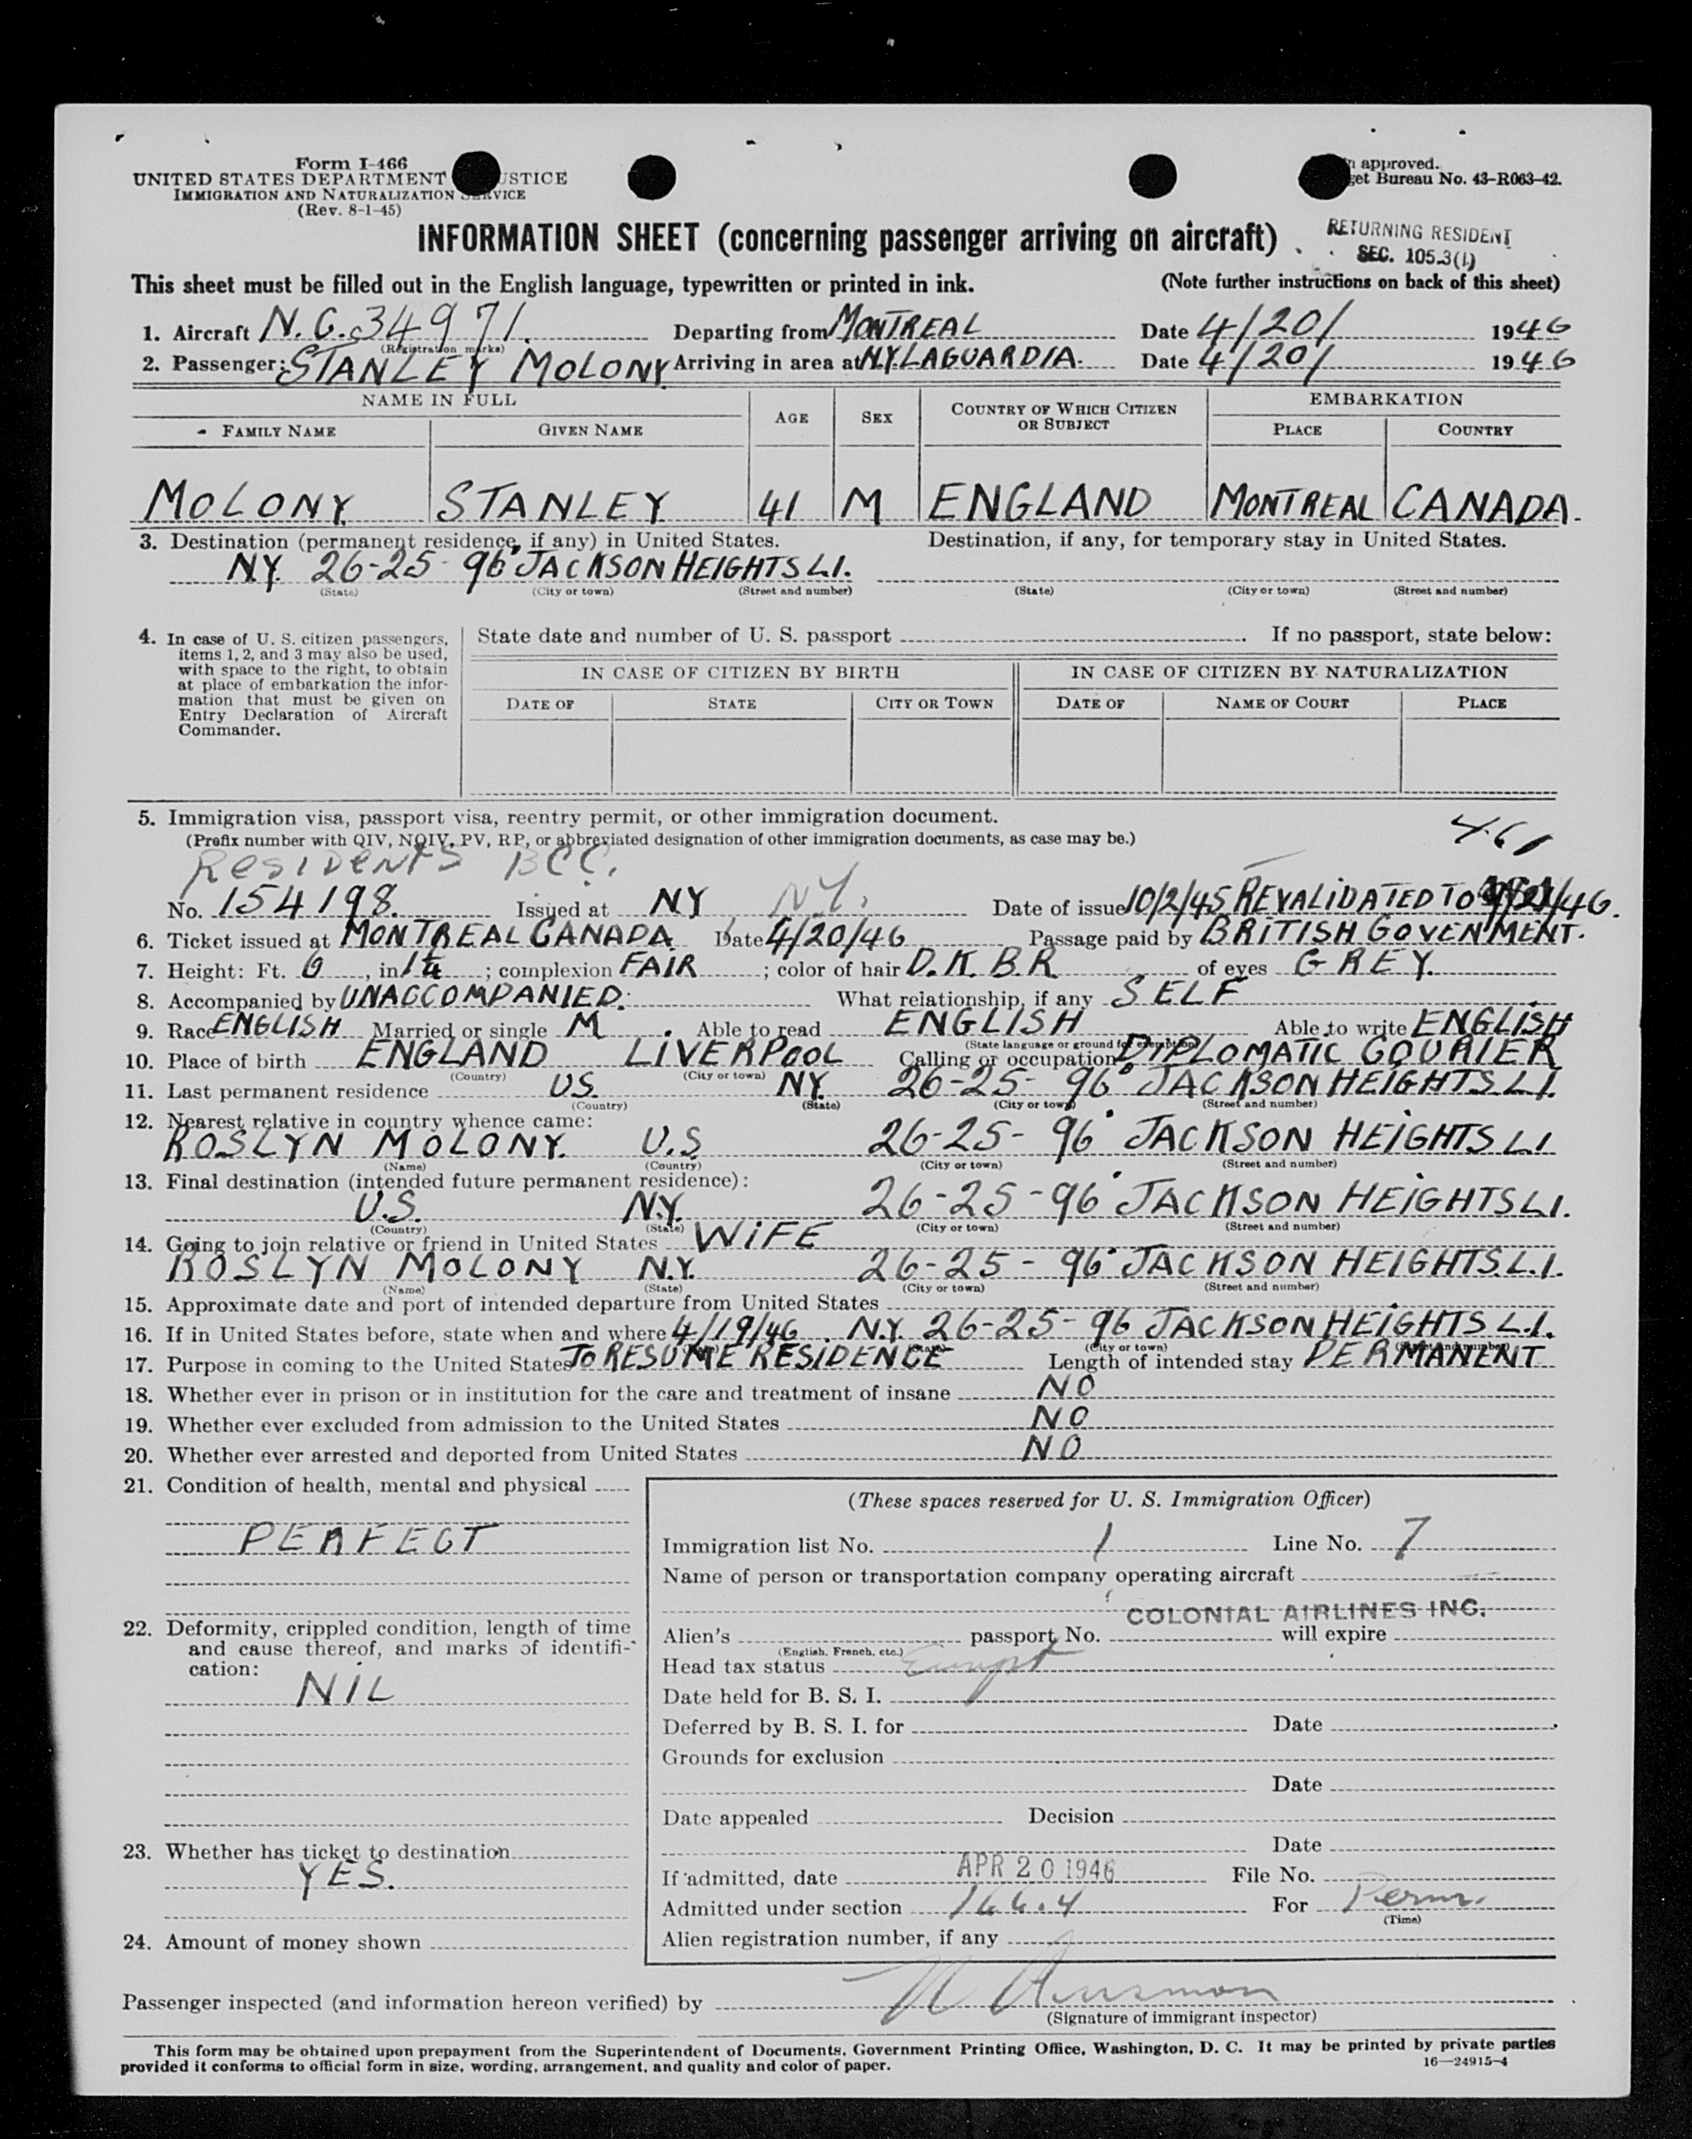 Form I-466
UNITED STATES DEPARTMENT JUSTICE
IMMIGRATION AND NATURALIZATION SERVICE
(Rev. 8-1-45)
approved.
get Bureau No. 43-R063-42.
INFORMATION SHEET (concerning passenger arriving on aircraft)
RETURNING RESIDENT
SEC. 105.3(1)
This sheet must be filled out in the English language, typewritten or printed in ink. (Note further instructions on back of this sheet)
1. Aircraft N.C. 34971. Departing from MONTREAL Date 4/20/ 1946
(Registration marks)
2. Passenger: STANLEY MOLONY Arriving in area at N.Y. LAGUARDIA. Date 4/20/ 1946
NAME IN FULL AGE SEX COUNTRY OF WHICH CITIZEN OR SUBJECT EMBARKATION
FAMILY NAME GIVEN NAME PLACE COUNTRY
MOLONY STANLEY 41 M ENGLAND MONTREAL CANADA.
3. Destination (permanent residence, if any) in United States. Destination, if any, for temporary stay in United States.
N.Y. 26-25- 96 JACKSON HEIGHTS L.I.
(State) (City or town) (Street and number) (State) (City or town) (Street and number)
4. In case of U. S. citizen passengers, items 1, 2, and 3 may also be used, with space to the right, to obtain at place of embarkation the information that must be given on Entry Declaration of Aircraft Commander.
State date and number of U. S. passport . If no passport, state below:
IN CASE OF CITIZEN BY BIRTH IN CASE OF CITIZEN BY NATURALIZATION
DATE OF STATE CITY OR TOWN DATE OF NAME OF COURT PLACE
5. Immigration visa, passport visa, reentry permit, or other immigration document.
(Prefix number with QIV, NQIV, PV, RP, or abbreviated designation of other immigration documents, as case may be.)
461
RESIDENTS BCC.
No. 154198. Issued at NY N.Y. Date of issue 10/2/45 REVALIDATED TO /46.
6. Ticket issued at MONTREAL CANADA Date 4/20/46 Passage paid by BRITISH GOVENMENT.
7. Height: Ft. 6, in 1¼; complexion FAIR; color of hair D.K. BR of eyes GREY.
8. Accompanied by UNACCOMPANIED. What relationship, if any SELF
9. Race ENGLISH Married or single M. Able to read ENGLISH Able to write ENGLISH
(State language or ground for exemption)
10. Place of birth ENGLAND LIVERPOOL Calling or occupation DIPLOMATIC COURIER
(Country) (City or town)
11. Last permanent residence US. NY. 26-25- 96 JACKSON HEIGHTS. L.I.
(Country) (State) (City or town) (Street and number)
12. Nearest relative in country whence came:
ROSLYN MOLONY. U.S 26-25- 96 JACKSON HEIGHTS L.I
(Name) (Country) (City or town) (Street and number)
13. Final destination (intended future permanent residence):
U.S. N.Y. 26-25-96 JACKSON HEIGHTS L.I.
(Country) (State) (City or town) (Street and number)
14. Going to join relative or friend in United States WIFE
ROSLYN MOLONY N.Y. 26-25- 96 JACKSON HEIGHTS. L.I.
(Name) (State) (City or town) (Street and number)
15. Approximate date and port of intended departure from United States
16. If in United States before, state when and where 4/19/46. N.Y. 26-25- 96 JACKSON HEIGHTS L.I.
(State) (City or town) (Street and number)
17. Purpose in coming to the United States TO RESUME RESIDENCE Length of intended stay PERMANENT
18. Whether ever in prison or in institution for the care and treatment of insane NO
19. Whether ever excluded from admission to the United States NO
20. Whether ever arrested and deported from United States NO
21. Condition of health, mental and physical
PERFECT
22. Deformity, crippled condition, length of time and cause thereof, and marks of identification:
NIL
23. Whether has ticket to destination
YES.
24. Amount of money shown
(These spaces reserved for U. S. Immigration Officer)
Immigration list No. 1 Line No. 7
Name of person or transportation company operating aircraft
COLONIAL AIRLINES INC.
Alien's passport No. will expire
(English, French, etc.)
Head tax status Exempt
Date held for B. S. I.
Deferred by B. S. I. for Date
Grounds for exclusion
Date
Date appealed Decision
Date
If admitted, date APR 20 1946 File No.
Admitted under section 166.4 For Perm.
(Time)
Alien registration number, if any
Passenger inspected (and information hereon verified) by
(Signature of immigrant inspector)
This form may be obtained upon prepayment from the Superintendent of Documents, Government Printing Office, Washington, D. C. It may be printed by private parties
provided it conforms to official form in size, wording, arrangement, and quality and color of paper. 16—24915-4